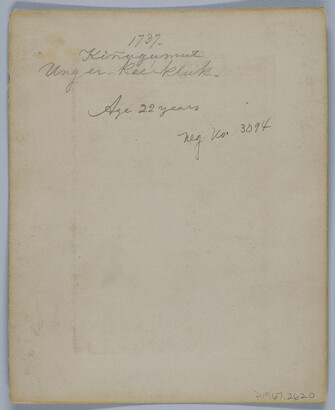 1737.
Kiñugumut
Ung er-kee-kluk.
Age 22 years
Neg. No. 3094
67.2620